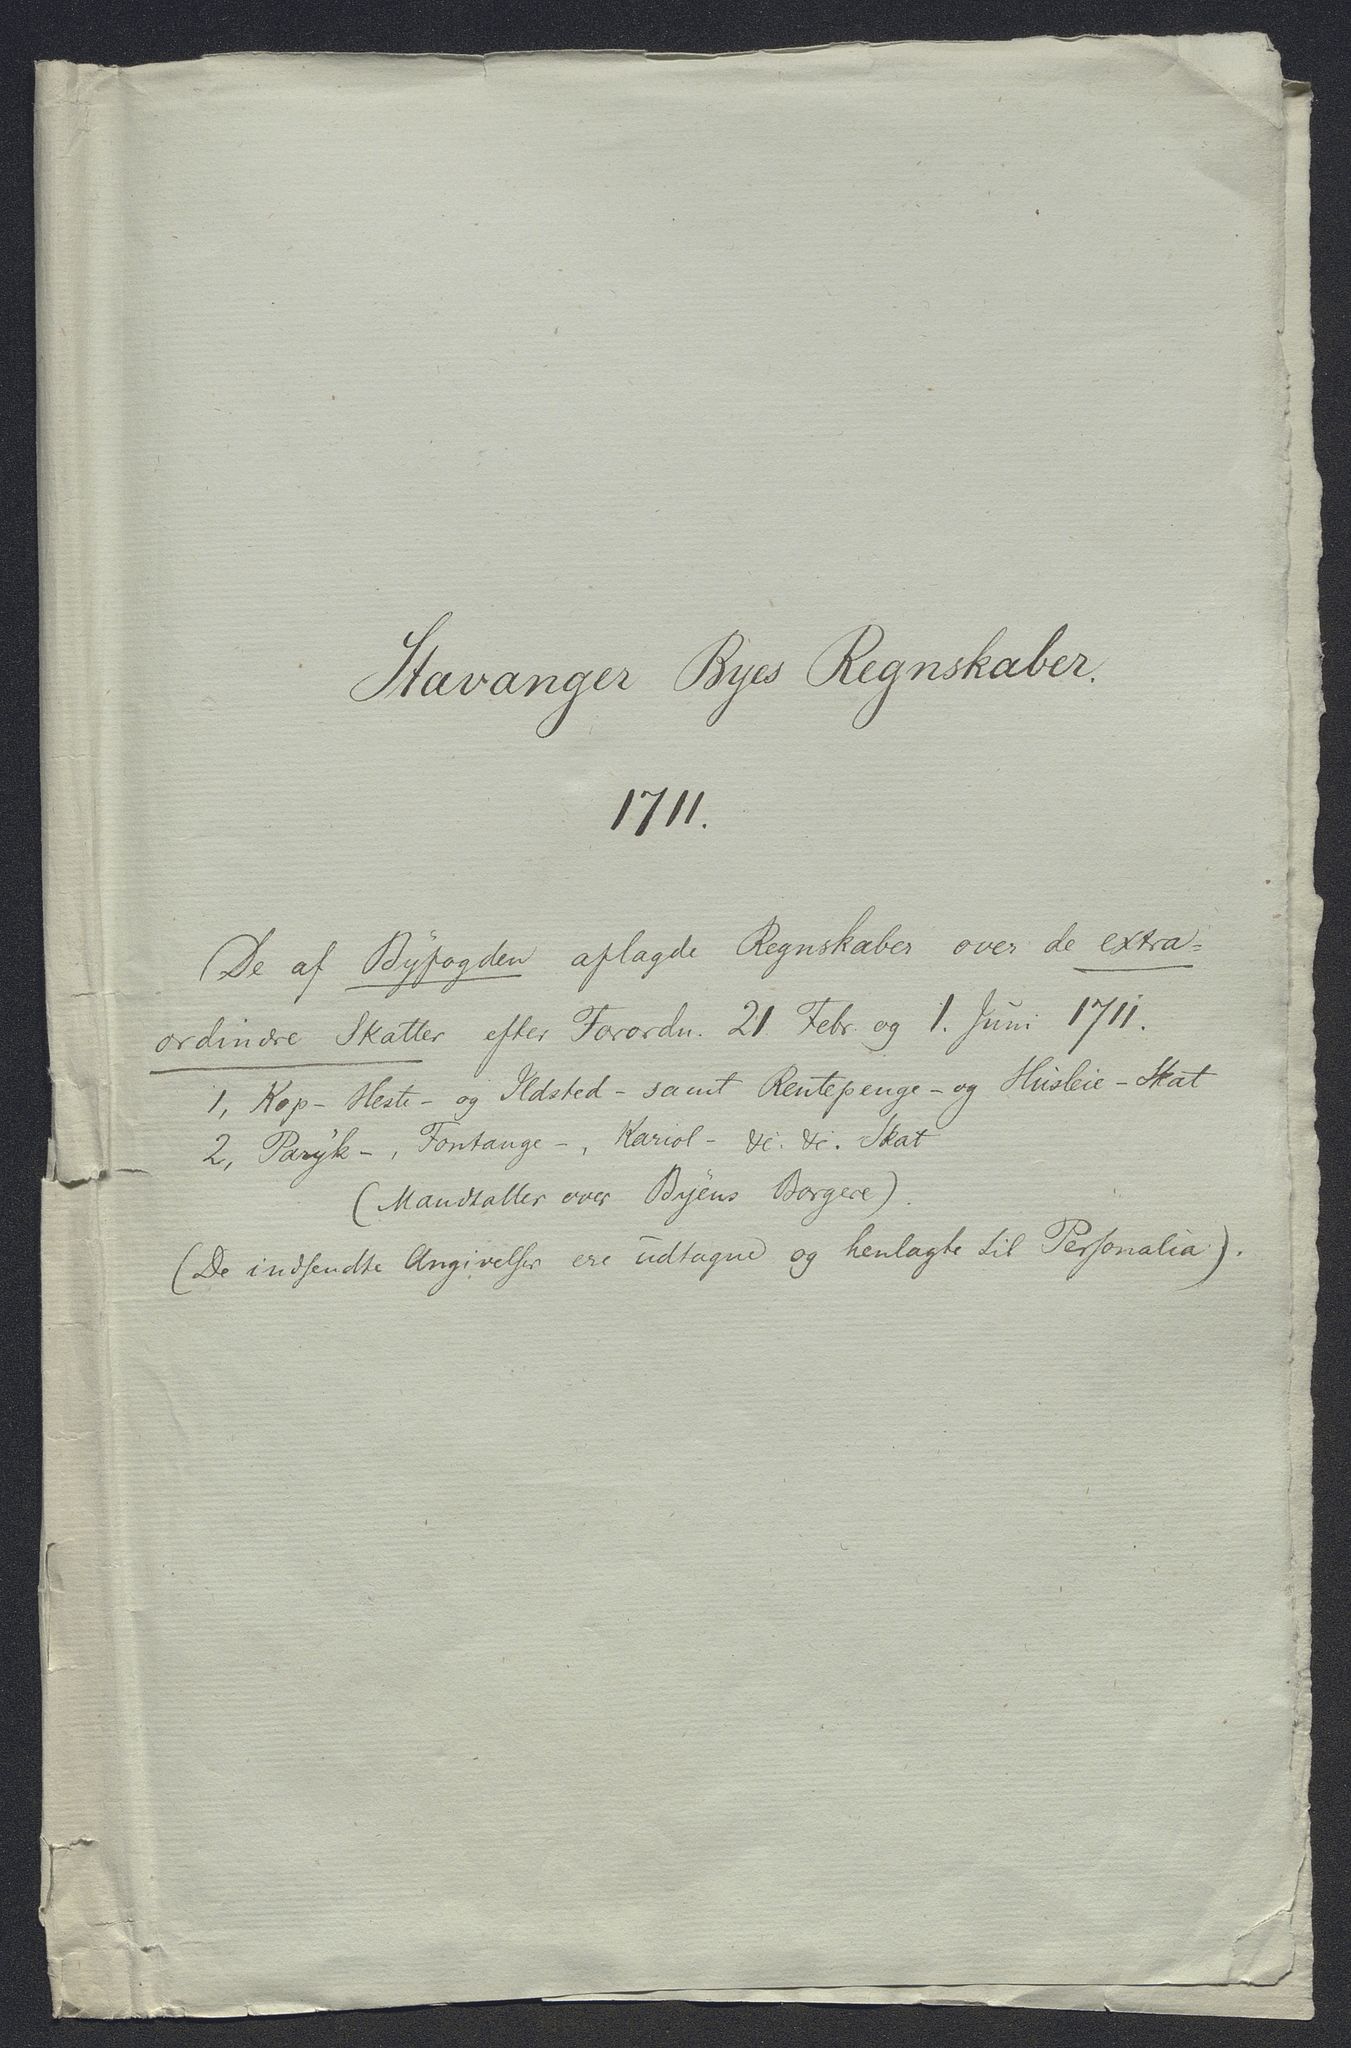 Stavanger Byes Regnskaber.
1711.
De af Byfogden aflagde Regnskaber over de extra=
ordinære Skatter efter Forordn. 21 Febr. og 1. Juni 1711.
1, Kop- Heste- og Ildsted- samt Rentepenge- og Husleie-Skat
2, Paryk-, Fontange-, Kariol- &c. &c. Skat
(Mandtaller over Byens Borgere).
(De indsendte Angivelser ere udtagne og henlagte til Personalia).